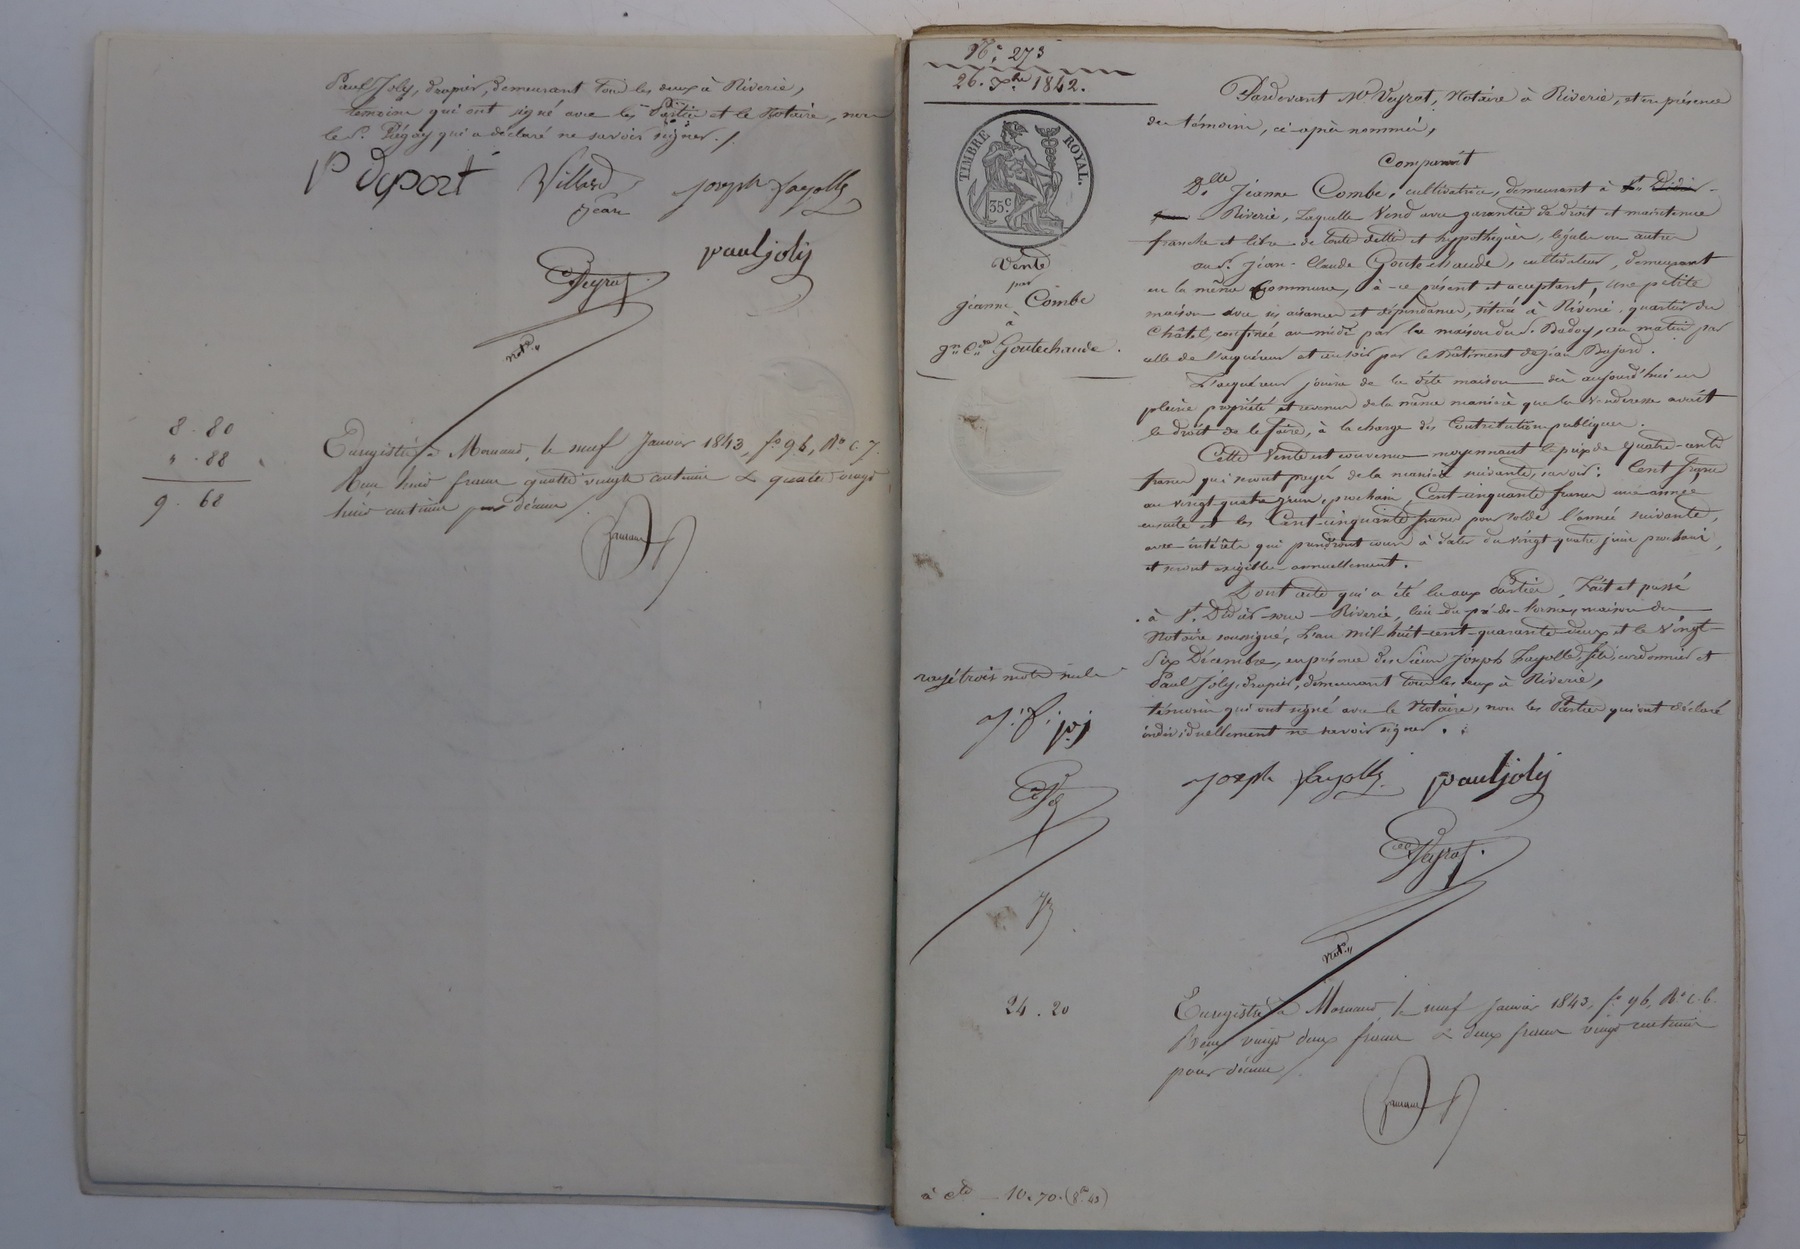 Paul Joly, drapier, demeurant tous les deux à Riverie,
témoins qui ont signé avec les Parties et le Notaire, non
le Sr. Piégay qui a déclaré ne savoir signer./.
P Duport Villard Joseph Fayolle
Jean
paul joly
Veyrat
notre
8. 80
" . 88
9. 68
Enregistré à Mornand, le neuf Janvier 1843, fo 96, Ro c 7.
Reçu huit francs quatre vingts centimes & quatre vingt
huit centimes pour décime
No. 273
26. Xbre 1842.
TIMBRE ROYAL.
35 c
Vente
par
Jeanne Combe
à
Jn Cde Goutechaude.
rayé trois mots nuls
J. F. pj
24. 20
à cte 10.70.
Pardevant Me Veyrat, Notaire à Riverie, et en présence
des témoins, ci-après nommés,
Comparait
Dlle Jeanne Combe, cultivatrice, demeurant à St Didier-
sous Riverie, Laquelle Vend avec garantie de droit et maintenue
franche et libre de toutes dettes et hypothèques, légales ou autres
au Sr. Jean-Claude Goutechaude, cultivateur, demeurant
en la même Commune, à ce présent et acceptant, une petite
maison avec ses aisances et dépendances, située à Riverie, quartier du
Châtel, confinée au midi par la maison du Sr. Baday, au matin par
celle de l'acquéreur et au soir par le bâtiment de Jean Bajard.
L'acquéreur jouira de la dite maison dès aujourd'hui en
pleine propriété et revenus de la même manière que la Venderesse avait
le droit de le faire, à la charge des Contributions publiques.
Cette Vente est convenue moyennant le prix de quatre-cents
francs qui seront payés de la manière suivante, savoir: Cent francs
au vingt-quatre juin prochain, Cent-cinquante francs une année
ensuite et les Cent-cinquante francs pour solde l'année suivante,
avec intérêts qui prendront cours à dater du vingt-quatre juin prochain,
et seront exigibles annuellement.
Dont acte qui a été lu aux Parties. Fait et passé
à St. Didier-sous-Riverie, lieu du pré-de-l'orme, maison du
Notaire soussigné, L'an mil-huit-cent-quarante-deux et le Vingt-
Six Décembre, en présence des Sieurs Joseph Fayolle, fils, cordonnier et
Paul Joly, drapier, demeurant tous les deux à Riverie,
témoins qui ont signé avec le Notaire, non les Parties qui ont déclaré
individuellement ne savoir signer.
Joseph Fayolle paul joly
Veyrat
notre
Enregistré à Mornand, le neuf Janvier 1843, fo 96, Ro c. 6.
Reçu vingt deux francs & deux francs vingt centimes
pour décime